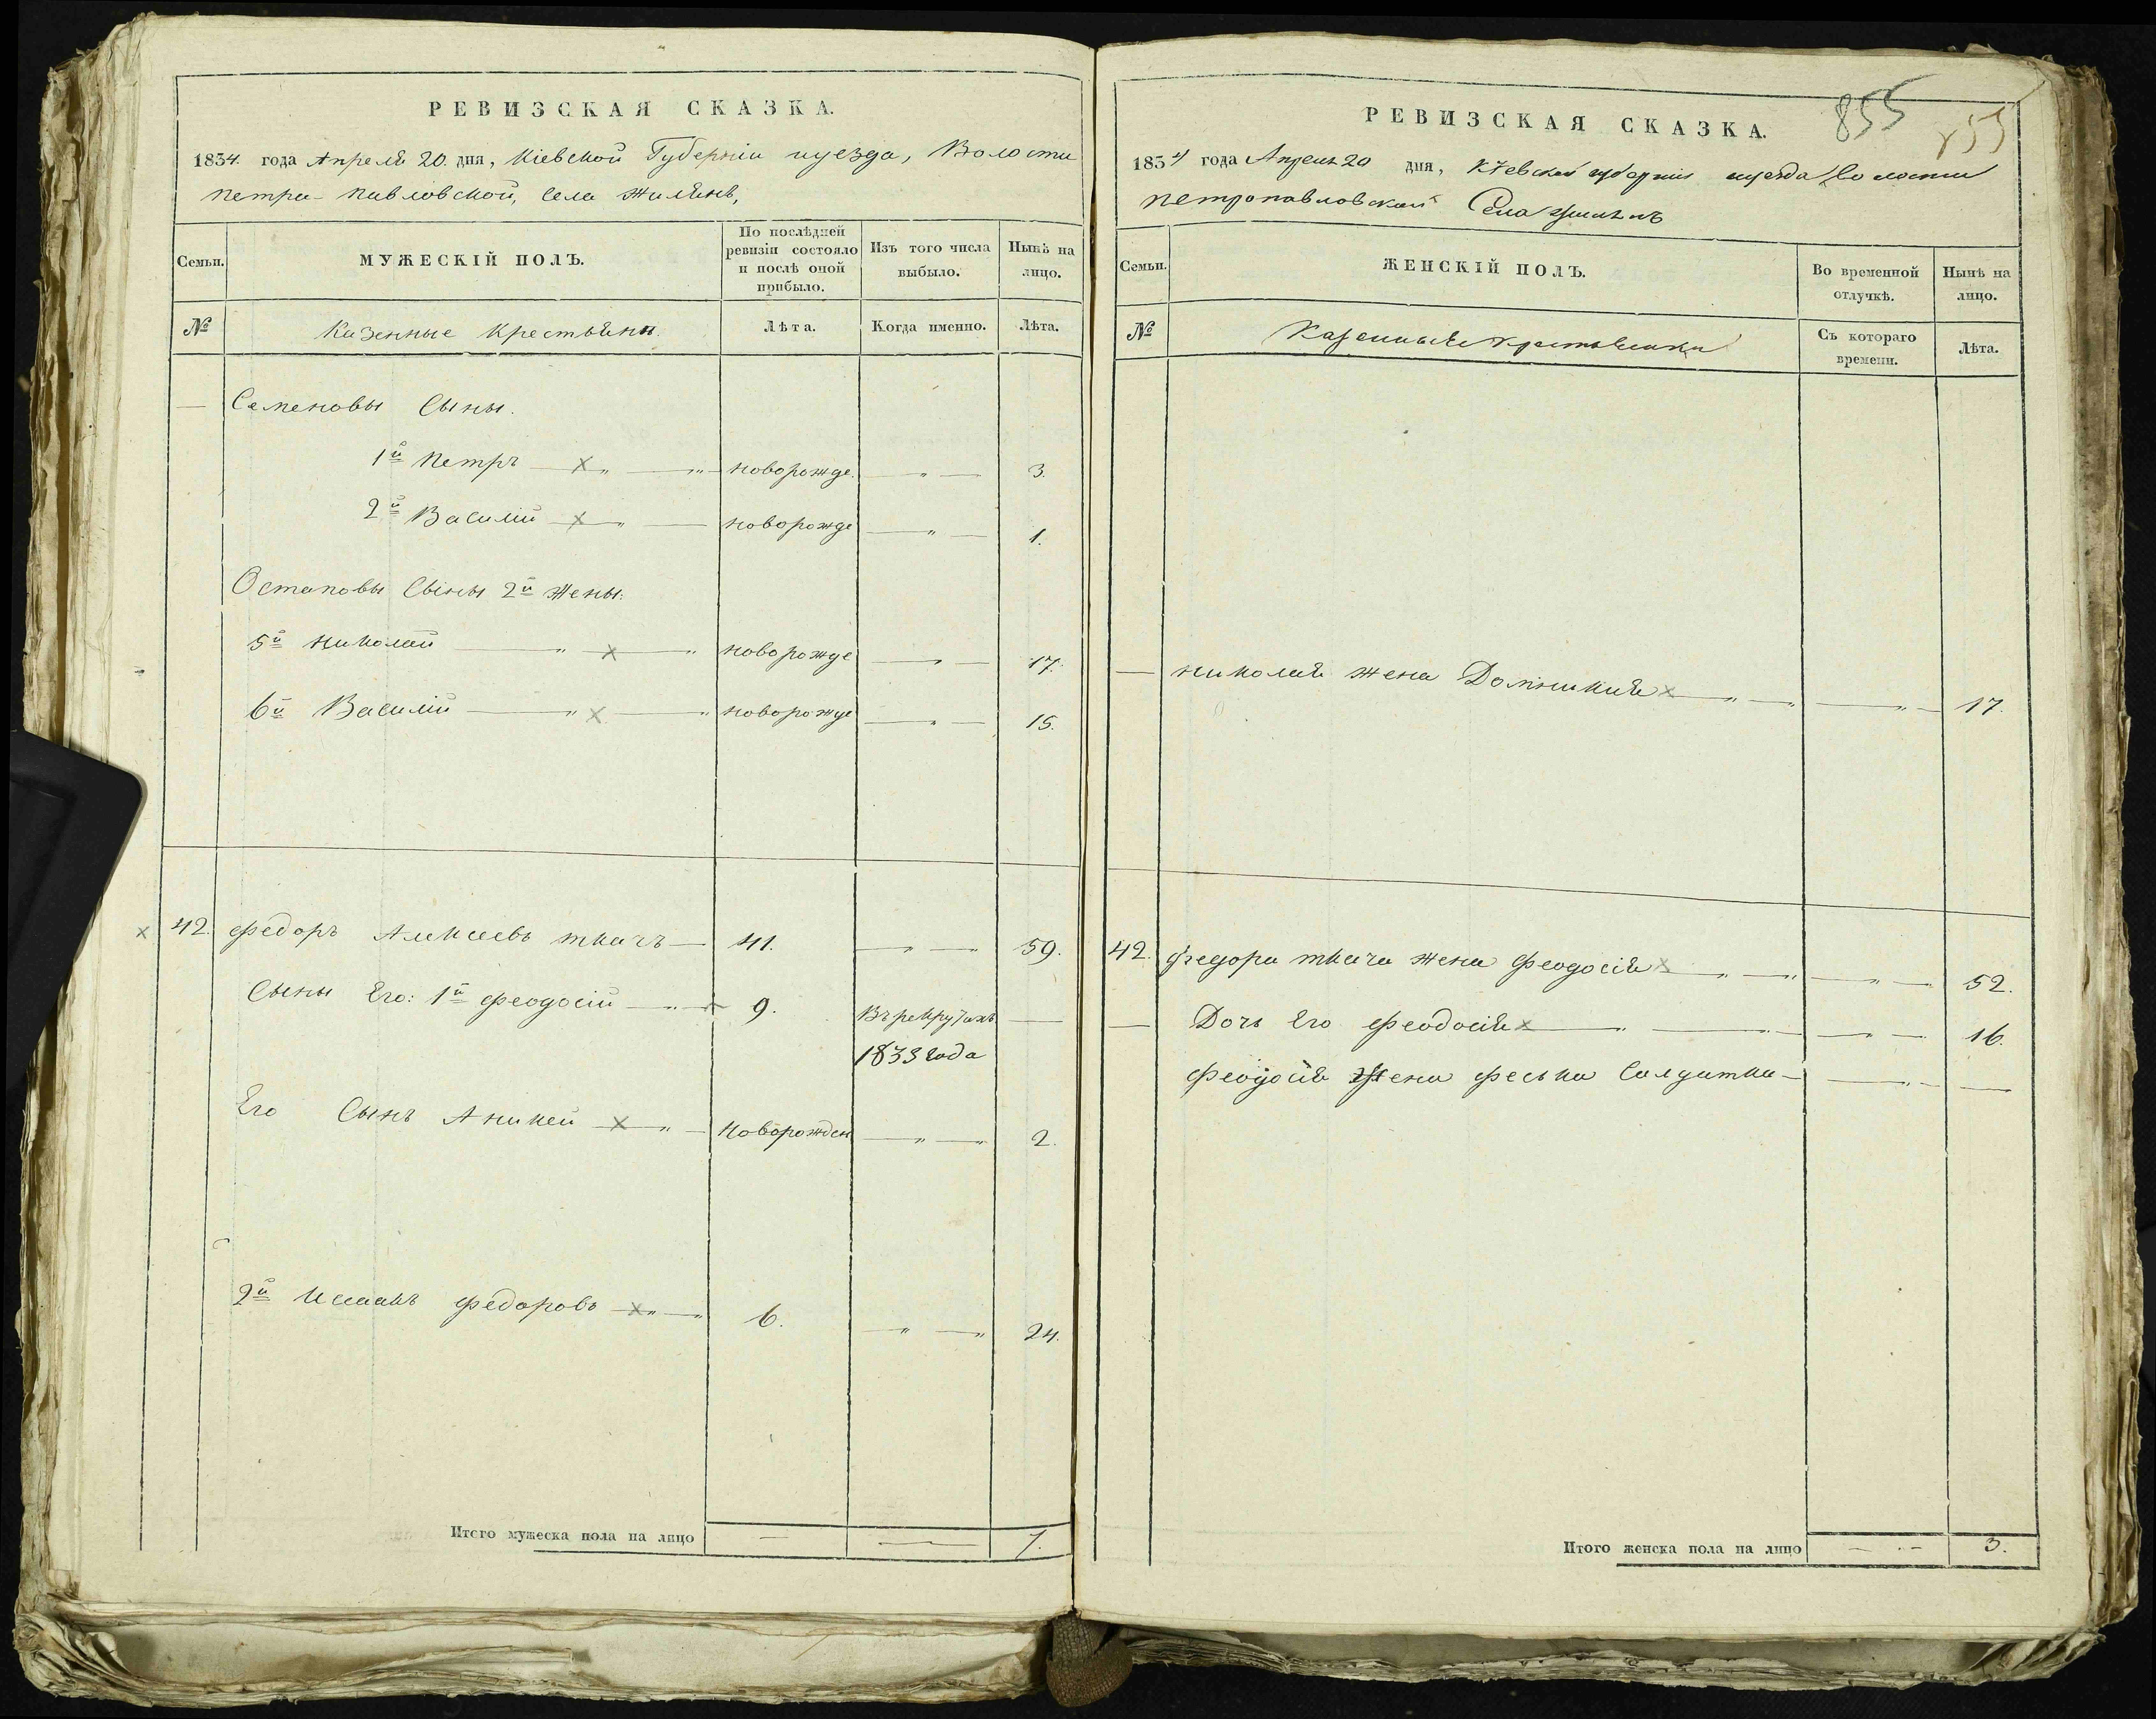 РЕВИЗСКАЯ СКАЗКА.
1834 года Апреля 20. дня, Кіевской Губерніи иуезда, Волости
Петра-Павловской, села Жилянъ,
Семьи.
МУЖЕСКІЙ ПОЛЪ.
По послѣдней ревизіи состояло и послѣ оной прибыло.
Изъ того числа выбыло.
Нынѣ на лицо.
№
Казенные Крестьяни.
Лѣта.
Когда именно.
Лѣта.
— Семеновы Сыны.
1й Петръ — x „ — „ новорожде. — „ — 3.
2й Василій — x „ — новорожде — „ — 1.
Остаповы Сыны 2й жены:
5й Николай — „ x „ новорожде — „ — 17.
6й Василій — „ x — „ новорожде — „ — 15.
x 42. Федоръ Алексеевъ ткачъ — 41. — „ — „ 59.
Сыны Его: 1й Феодосій — „ x 9. Въ рекрутахъ —
1833 года
Его Сынъ Аникей — x — „ — новорожден — „ — „ 2.
2й Исаакъ Федоровъ — x „ — „ 6. „ — „ 24.
Итого мужеска пола на лицо — — 7.
855
855
РЕВИЗСКАЯ СКАЗКА.
1834 года Апреля 20 дня, Кіевской губерніи иуезда Волости
Петропавловской Села Жилянъ
Семьи.
ЖЕНСКІЙ ПОЛЪ.
Во временной отлучкѣ.
Нынѣ на лицо.
№
Казенныея Крестьянки
Съ котораго времени.
Лѣта.
— Николая жена Домникия x — „ — „ — „ — 17.
42. Федора ткача жена Феодосія x — „ — „ — „ — 52.
— Дочь Его Феодосія x — „ — „ — „ — 16.
Феодосія Жена Феська Салдатка — — „ — —
Итого женска пола на лицо — „ — 3.